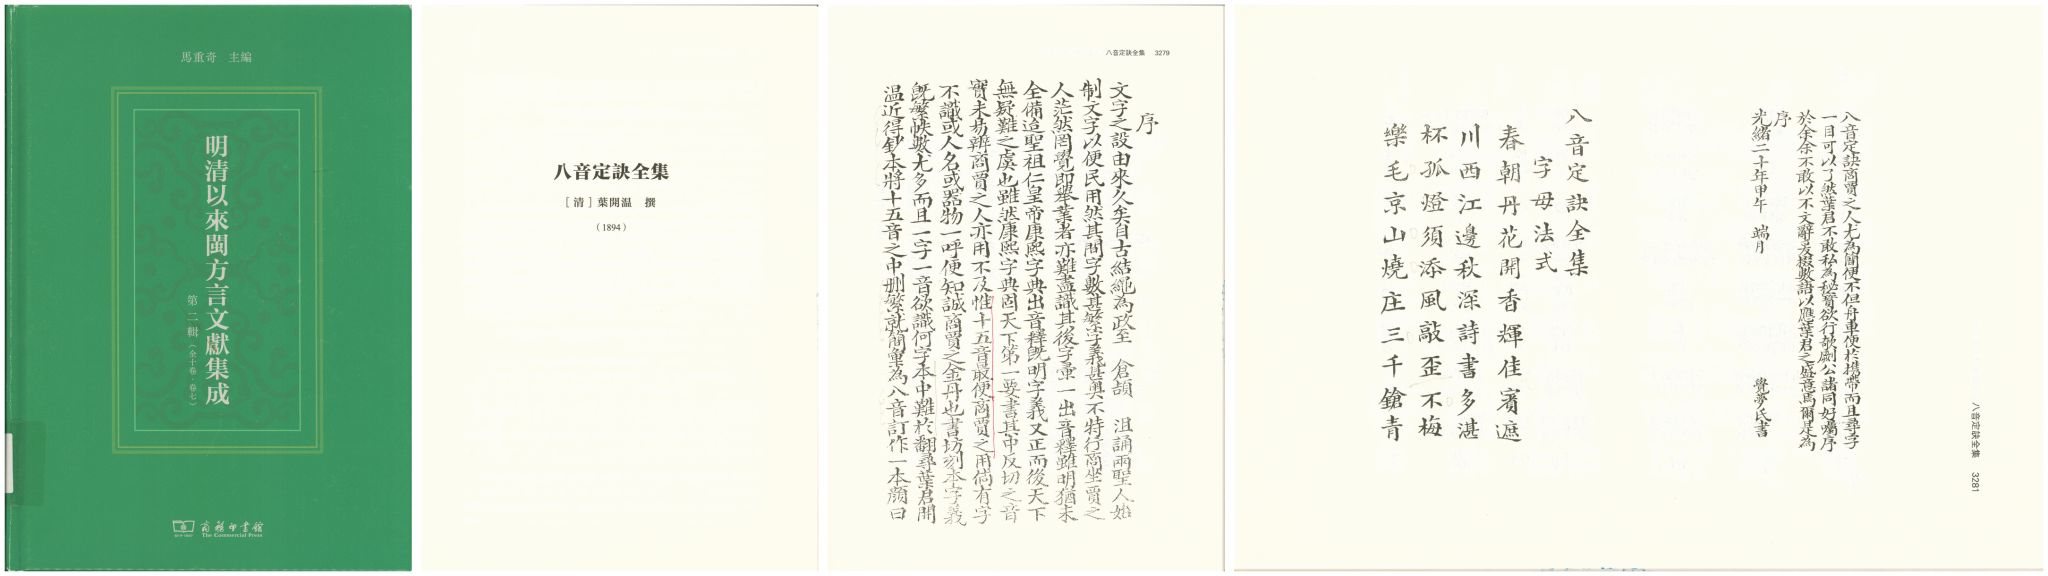 馬重奇 主編
明清以來閩方言文獻集成
第二輯
（全十卷·卷七）
商務印書館
The Commercial Press
八音定訣全集
［清］葉開温 撰
（1894）
八音定訣全集 3279
序
文字之設由來久矣自古結繩為政至 倉頡 沮誦兩聖人始
制文字以便民用然其間字數甚繁字義甚奧不特行商坐賈之
人茫然罔覺即舉業者亦難盡識其後字彙一出音釋雖明猶未
全備迨聖祖仁皇帝康熙字典出音釋既明字義又正而後天下
無疑難之虞也雖然康熙字典固天下第一要書其中反切之音
實未易辨商賈之人亦用不及惟十五音最便商賈之用倘有字
不識或人名或器物一呼便知誠商賈之金丹也書坊刻本字義
既繁帙數尤多而且一字一音欲識何字本中難於翻尋葉君開
温近得鈔本將十五音之中刪繁就簡彙為八音訂作一本顏曰
八音定訣商賈之人尤為簡便不但舟車便於攜帶而且尋字
一目可以了然葉君不敢私為秘寶欲行剞劂公諸同好囑序
於余余不敢以不文辭爰綴數語以應葉君之盛意焉爾是為
序
光緒二十年甲午 端月 覺夢氏書
八音定訣全集 3281
八音定訣全集
字母法式
春朝丹花開香輝佳賓遮
川西江邊秋深詩書多湛
杯孤燈須添風敲歪不梅
樂毛京山燒庄三千鎗青